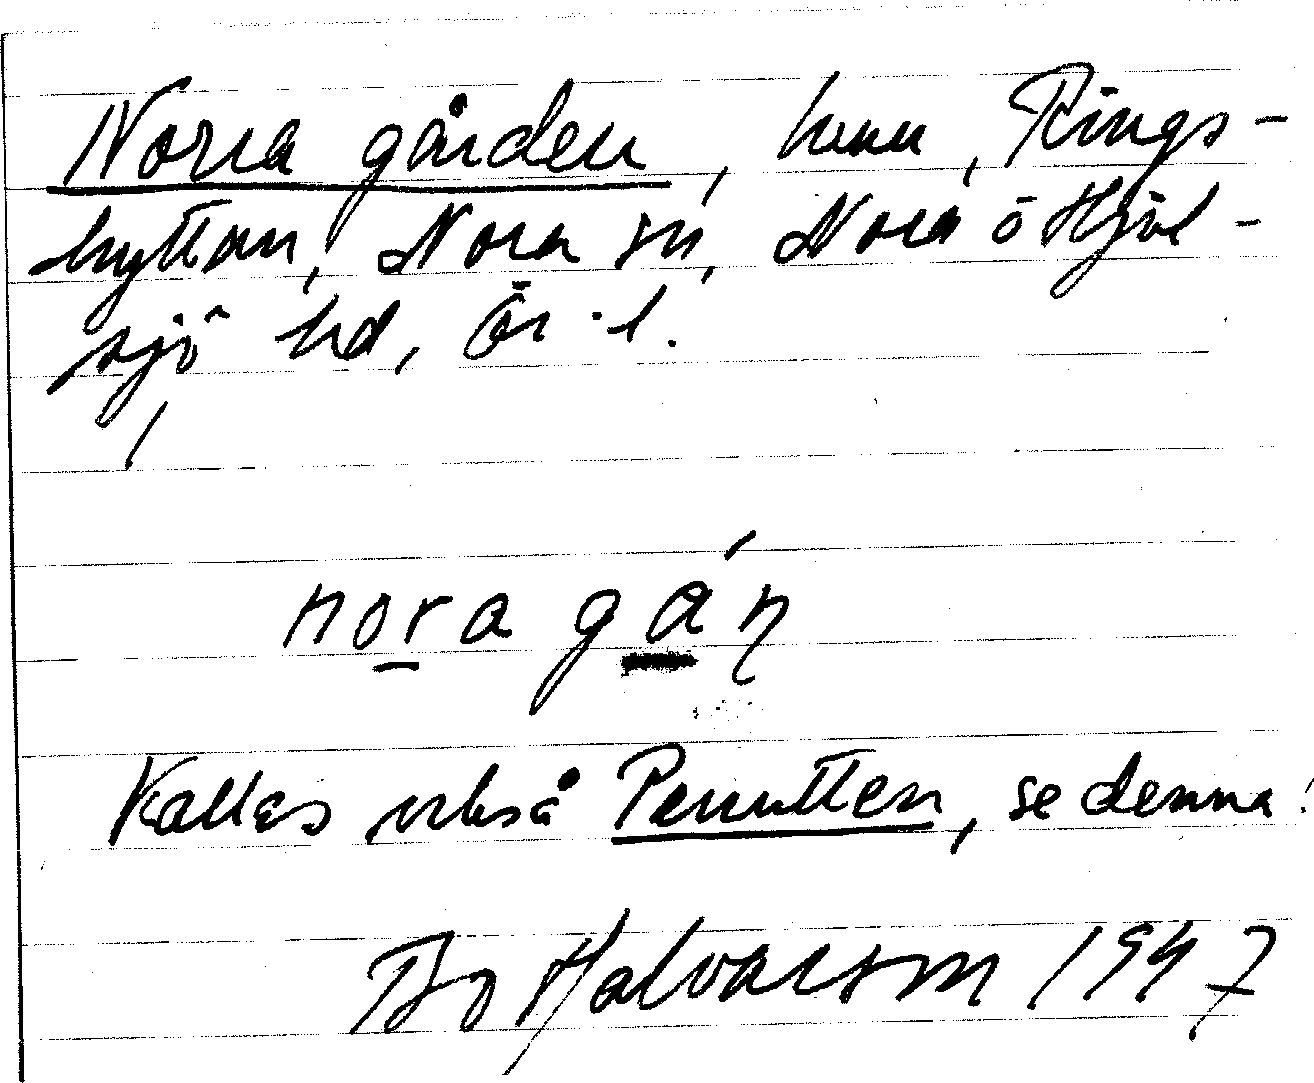 Norra gården, hmn, Rings-
hyttan, Nora sn, Nora o Hjul-
sjö hd, Ör. l.
nora gán
Kallas också Perutten, se denna!
Bo Halvarson 1947